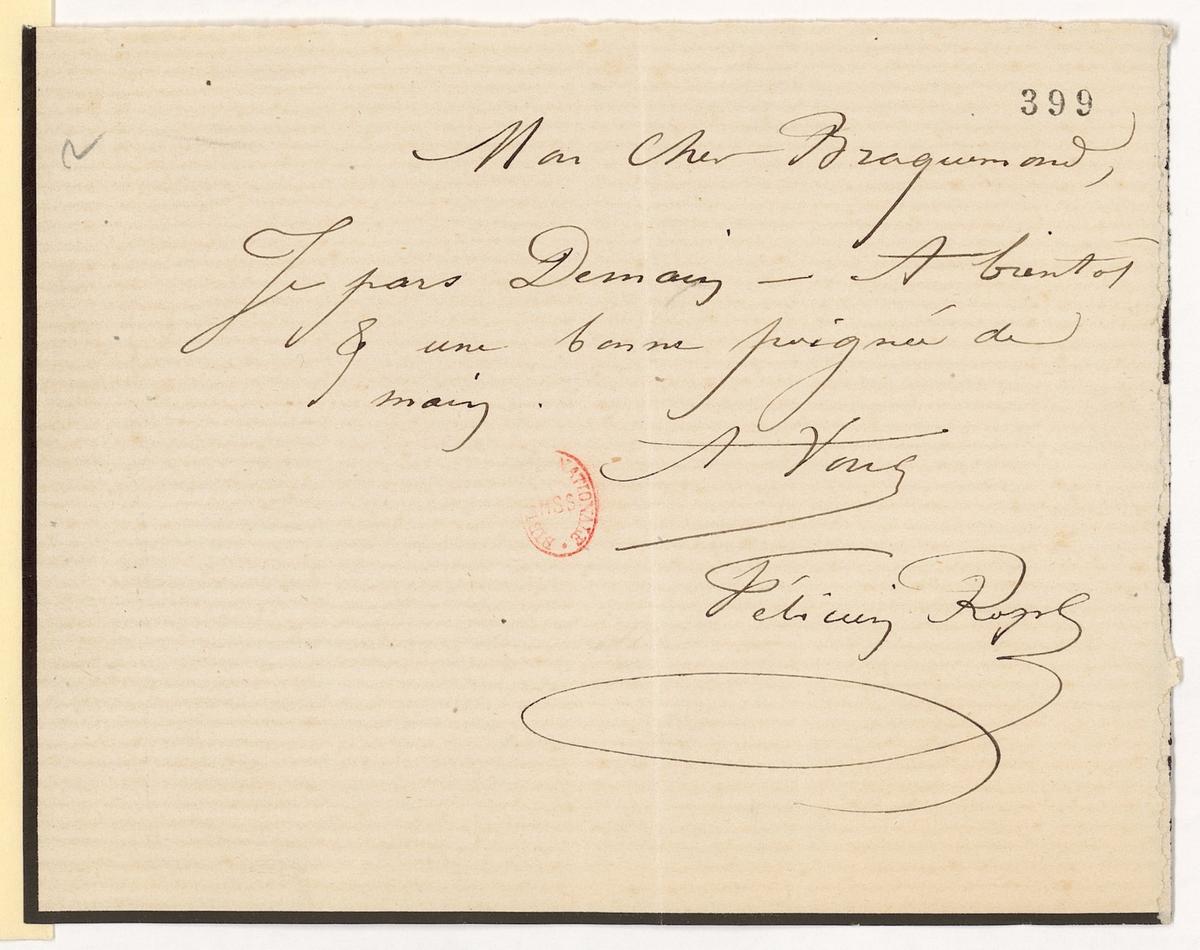 399
Mon cher Braquemond,
Je pars Demain — A bientot
& une bonne poignée de
main.
A Vous
Félicien Rops
NATIONALE
MSS
BIBL